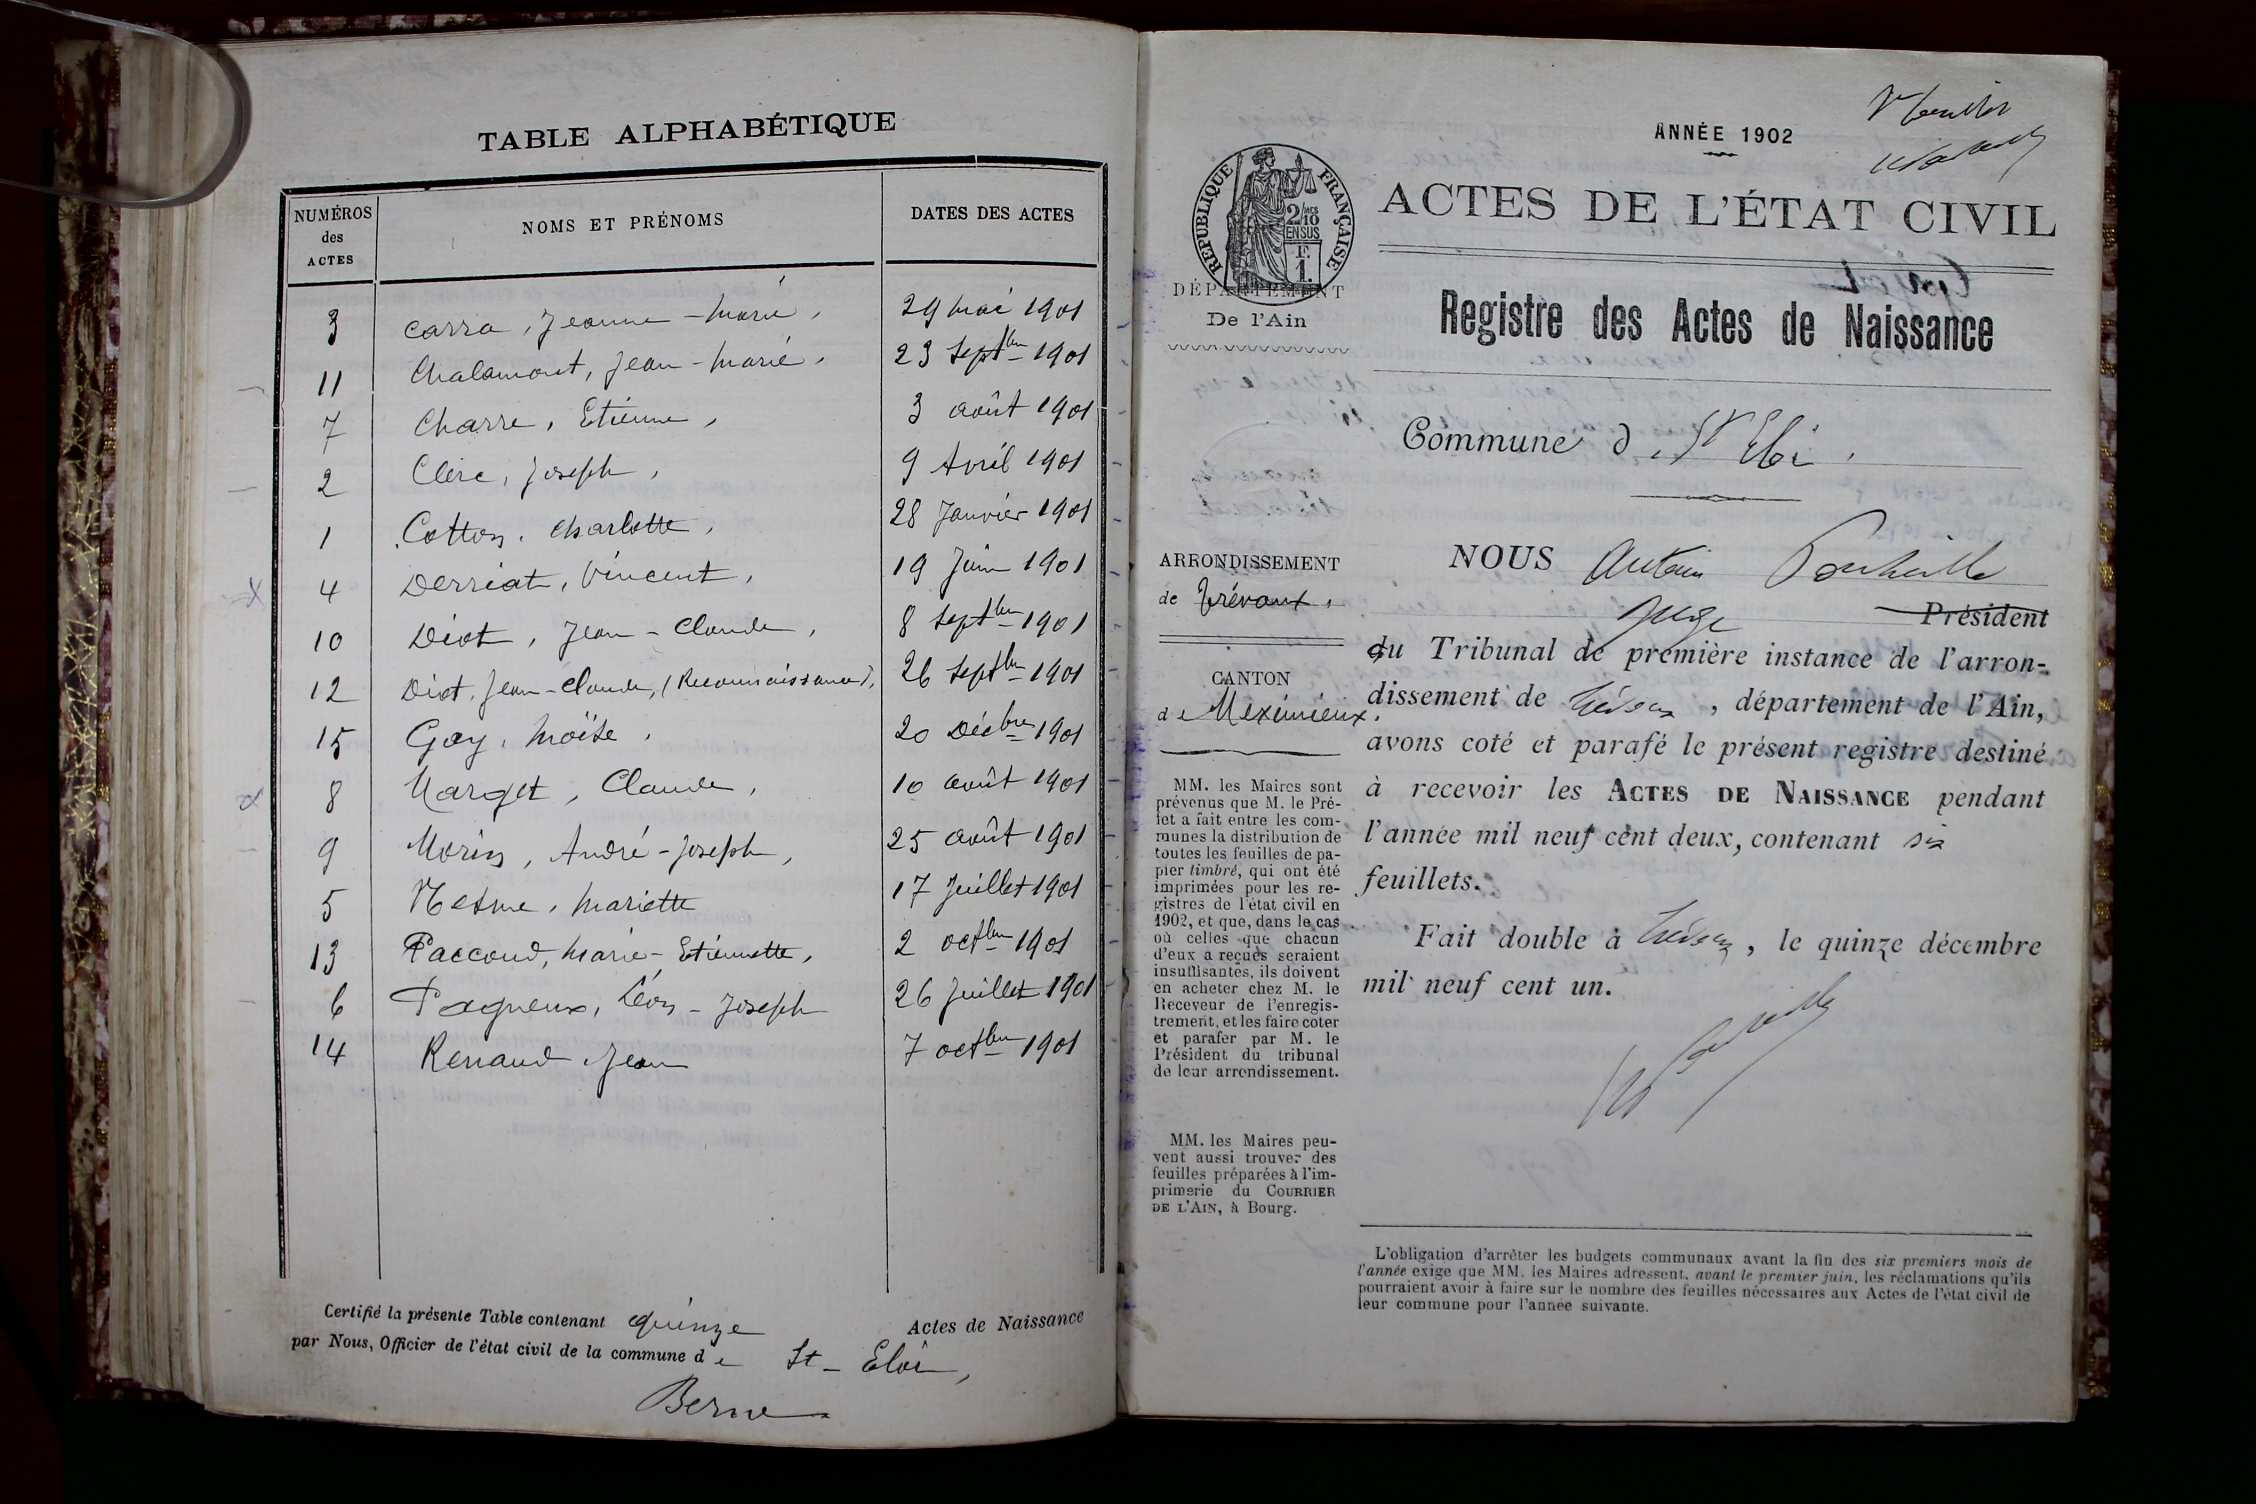 TABLE ALPHABÉTIQUE
NUMÉROS des ACTES NOMS ET PRÉNOMS DATES DES ACTES
3 Carra, Jeanne-Marie, 29 Mai 1901
11 Chalamont, Jean-Marie, 23 Septbre 1901
7 Charre, Etienne, 3 août 1901
2 Clerc, Joseph, 9 Avril 1901
1 Cotton, Charlotte, 28 Janvier 1901
4 Derriat, Vincent, 19 Juin 1901
10 Diot, Jean-Claude, 8 Septbre 1901
12 Diot, Jean-Claude, (Reconnaissance), 26 Septbre 1901
15 Gay, Moïse, 20 Décbre 1901
8 Marget, Claude, 10 août 1901
9 Morin, André-Joseph, 25 août 1901
5 Nesme, Mariette 17 Juillet 1901
13 Paccoud, Marie-Etiennette, 2 octbre 1901
6 Pagneux, Léon-Joseph 26 Juillet 1901
14 Renaud Jean 7 octbre 1901
Certifié la présente Table contenant quinze Actes de Naissance
par Nous, Officier de l'état civil de la commune de St-Eloi,
Berne
ANNÉE 1902
RÉPUBLIQUE FRANÇAISE
2/10 EN SUS
F. 1.
ACTES DE L'ÉTAT CIVIL
DÉPARTEMENT
De l'Ain
Registre des Actes de Naissance
Commune d St Eloi.
ARRONDISSEMENT
de Trévoux.
CANTON
de Meximieux.
MM. les Maires sont
prévenus que M. le Pré-
fet a fait entre les com-
munes la distribution de
toutes les feuilles de pa-
pier timbré, qui ont été
imprimées pour les re-
gistres de l'état civil en
1902, et que, dans le cas
où celles que chacun
d'eux a reçues seraient
insuffisantes, ils doivent
en acheter chez M. le
Receveur de l'enregis-
trement, et les faire coter
et parafer par M. le
Président du tribunal
de leur arrondissement.
MM. les Maires peu-
vent aussi trouver des
feuilles préparées à l'im-
primerie du COURRIER
DE L'AIN, à Bourg.
NOUS Antoin
Juge Président
du Tribunal de première instance de l'arron-
dissement de Trévoux, département de l'Ain,
avons coté et parafé le présent registre destiné
à recevoir les ACTES DE NAISSANCE pendant
l'année mil neuf cent deux, contenant six
feuillets.
Fait double à Trévoux, le quinze décembre
mil neuf cent un.
L'obligation d'arrêter les budgets communaux avant la fin des six premiers mois de
l'année exige que MM. les Maires adressent, avant le premier juin, les réclamations qu'ils
pourraient avoir à faire sur le nombre des feuilles nécessaires aux Actes de l'état civil de
leur commune pour l'année suivante.